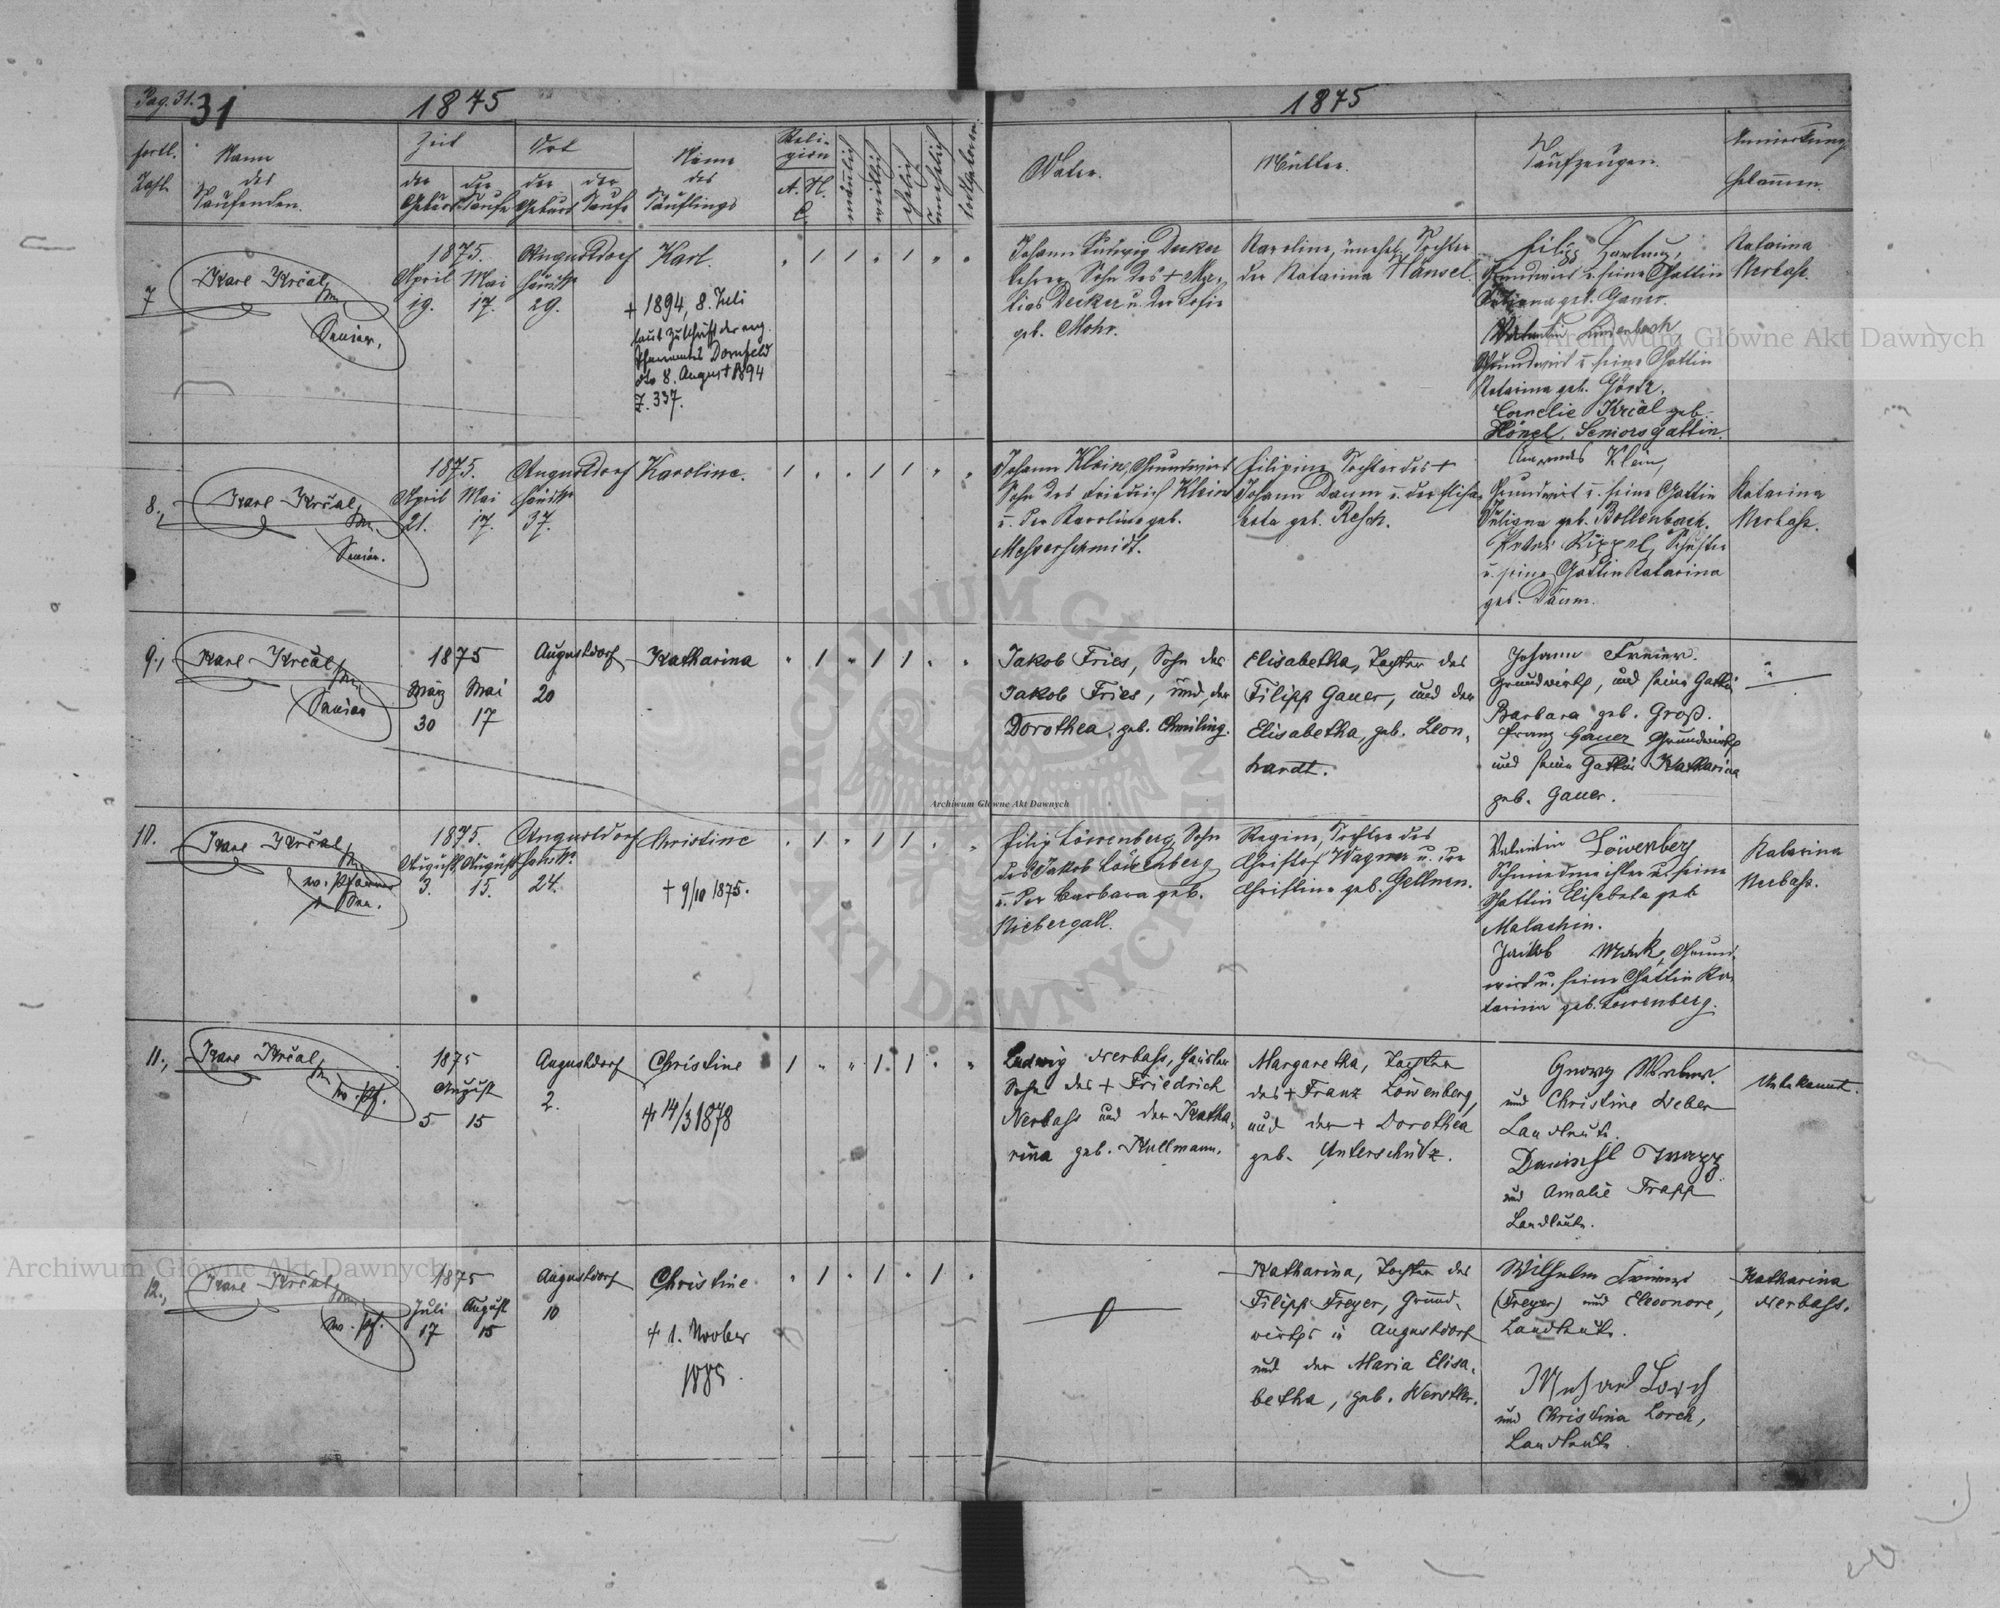 Pag. 31.
31
1875
1875
fortl. Zahl
Name des Taufenden.
Zeit
der Geburt
der Taufe
Ort
der Geburt
der Taufe
Name des Täuflings
Religion
A. C.
H.
männlich
weiblich
ehelich
unehelich
todtgeboren
Vater.
Mutter.
Taufzeugen.
Anmerkung
Hebammen.
7
Karl Krčal
Senior.
1875.
April Mai
19. 17.
Augustdorf
Haus Nr
29.
Karl.
+ 1894, 8. Juli
laut Zuschrift der evg.
Pfarramtes Dornfeld
dto 8. August 1894
Z. 337.
Johann Ludwig Decker
Lehrer, Sohn des + Ma-
tias Decker u. der Sofie
geb. Mohr.
Karoline, unehel. Tochter
der Katarina Hänsel.
Filipp Hartung,
Grundwirt u. seine Gattin
Juliana geb. Gauer.
Valentin Lindenbach
Grundwirt u. seine Gattin
Katarina geb. Görtz.
Cornelie Krčal geb.
Hönel, Seniorsgattin.
Katarina
Nerbass.
8.,
Karl Krčal
Senior.
1875.
April Mai
21. 17.
Augustdorf
Haus Nr
37.
Karoline.
Johann Klein, Grundwirt
Sohn des Friedrich Klein
u. der Karoline geb.
Messerschmidt.
Filipine Tochter des +
Johann Daum u. der Elisa-
beta geb. Resch.
Klein,
Grundwirt u. seine Gattin
Juliana geb. Bollenbach.
Peter Rippel, Schuster
u. seine Gattin Katarina
geb. Daum.
Katarina
Nerbass.
9.,
Karl Krčal
Senior
1875
März Mai
30 17
Augustdorf
20
Katharina
Jakob Fries, Sohn des
Jakob Fries, und der
Dorothea, geb. Chmiling.
Elisabetha, Tochter des
Filipp Gauer, und der
Elisabetha, geb. Leon-
hardt.
Johann Freier.
Grundwirth, und seine Gattin
Barbara geb. Groß.
Franz Gauer Grundwirth
und seine Gattin Katharina
geb. Gauer.
10.
Karl Krčal
ev. Pfarrer
u. Sen.
1875.
August August
3. 15.
Augustdorf
Haus Nr
24.
Christine
+ 9/10 1875.
Filip Löwenberg, Sohn
des Jakob Löwenberg
u. der Barbara geb.
Niebergall.
Regine, Tochter des
Christof Wagner u. der
Christine geb. Gellner.
Valentin Löwenberg
Schmiedmeister u. seine
Gattin Elisabeta geb.
Malachin.
Jakob Mark, Grund-
wirt u. seine Gattin Ka-
tarina geb. Löwenberg.
Katarina
Nerbass.
11.,
Karl Krčal
ev. Pf.
1875
August
5 15
Augustdorf
2.
Christine
+ 14/3 1878
Ludwig Nerbass, Häusler
Sohn des + Friedrich
Nerbass und der Katha-
rina geb. Kullmann.
Margaretha, Tochter
des + Franz Löwenberg,
und der + Dorothea
geb. Unterschütz.
Georg Weber.
und Christine Weber
Landleute.
Daniel Trapp
und Amalie Trapp
Landleute.
Unbekannt.
12.,
Karl Krčal
ev. Pf.
1875
Juli August
17 15
Augustdorf
10
Christine
+ 1. November
1885.
Katharina, Tochter des
Filipp Freyer, Grund-
wirths in Augustdorf
und der Maria Elisa-
betha, geb. Werstler.
Wilhelm Freier
(Freyer) und Eleonore,
Landleute.
Lorch
und Christina Lorch,
Landleute.
Katharina
Nerbass.
Archiwum Główne Akt Dawnych
Archiwum Główne Akt Dawnych
Archiwum Główne Akt Dawnych
ARCHIWUM GŁÓWNE AKT DAWNYCH